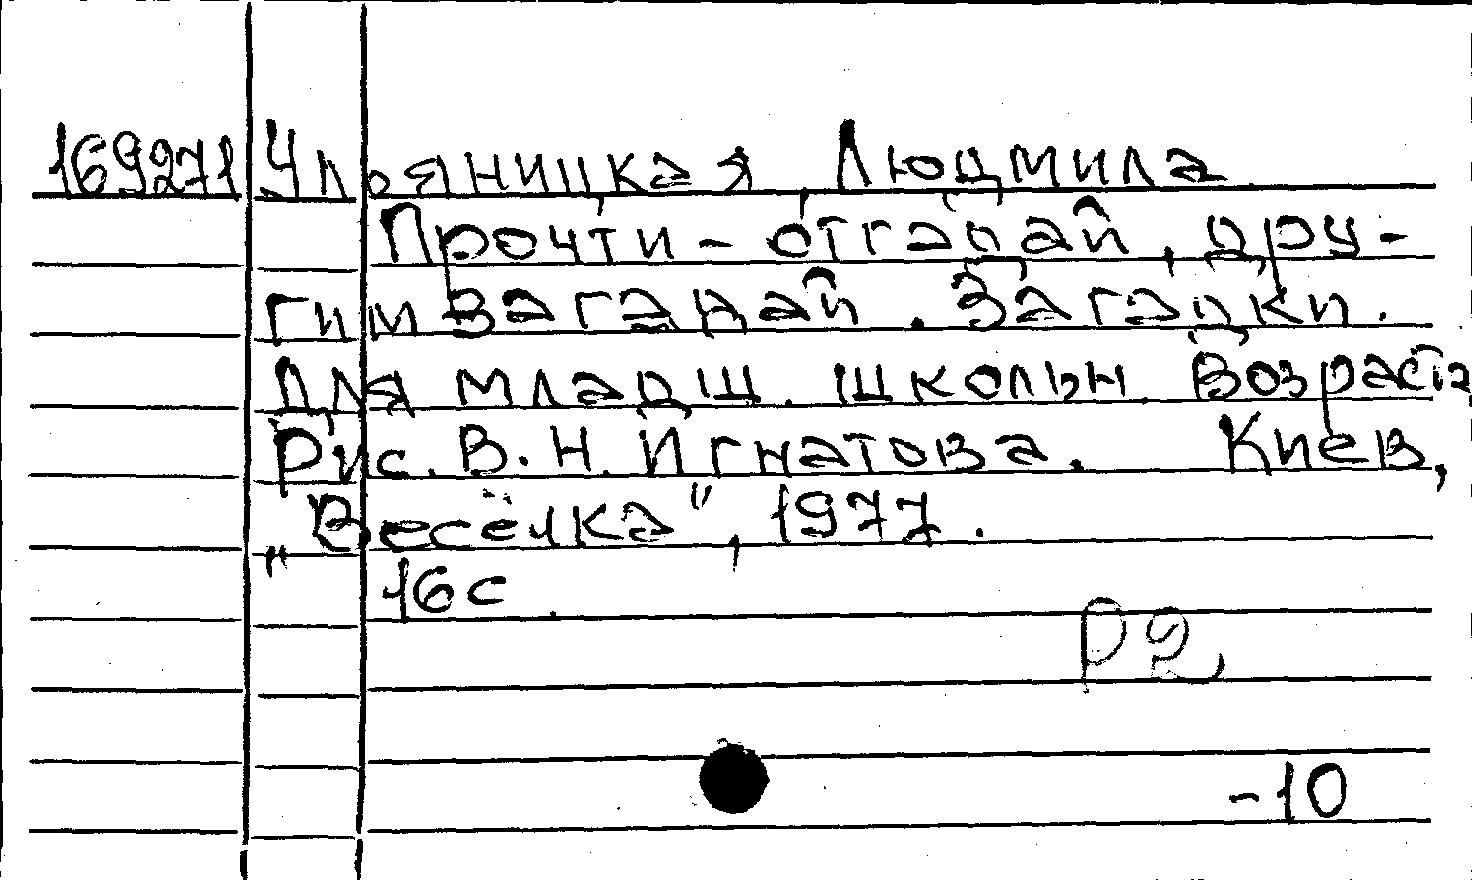 169271 Ульяницкая, Людмила
Прочти - отгадай, дру-
гим загадай. Загадки.
Для младш. школьн. возраста
Рис. В. Н. Игнатова. Киев,
„Весёлка", 1977.
16с.
Р2
-10